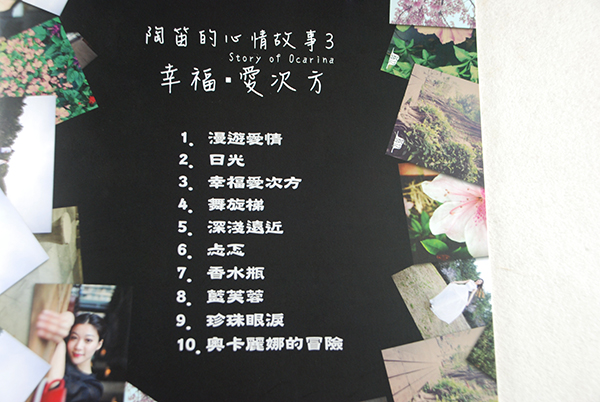 陶笛的心情故事3
Story of Ocarina
幸福·愛次方
1. 漫遊愛情
2. 日光
3. 幸福愛次方
4. 舞旋梯
5. 深淺遠近
6. 忐忑
7. 香水瓶
8. 藍芙蓉
9. 珍珠眼淚
10. 奧卡麗娜的冒險